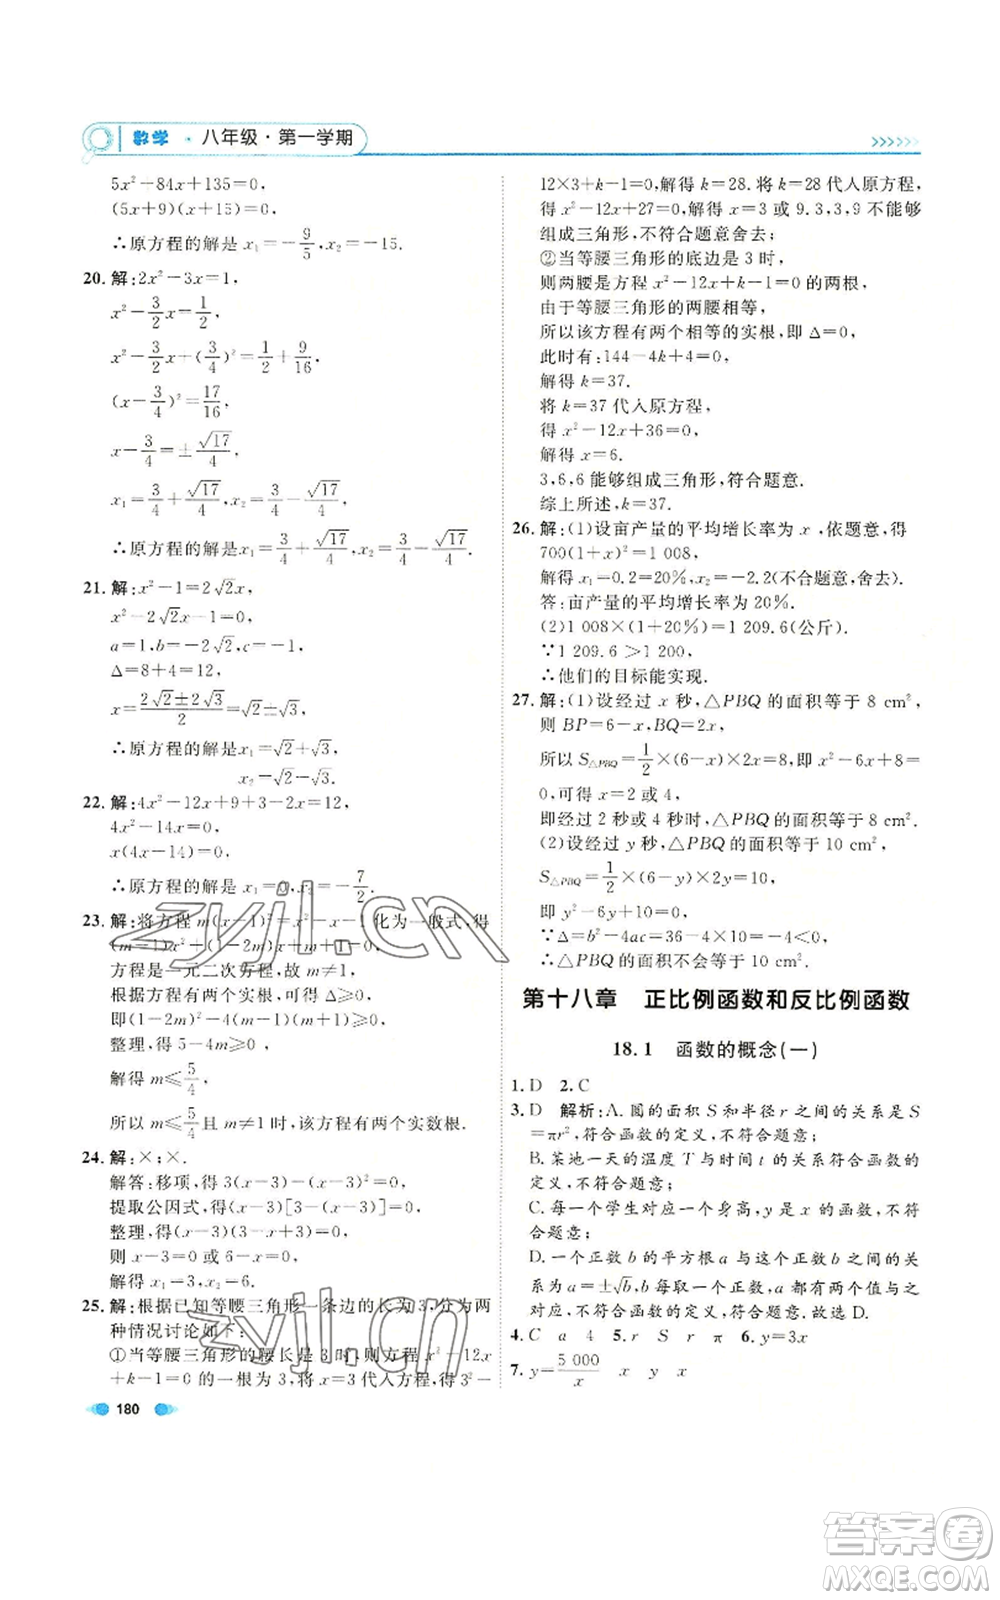 数学 · 八年级 · 第一学期
5x²－84x＋135＝0,
(5x＋9)(x＋15)＝0,
∴原方程的解是 x₁＝－9/5, x₂＝－15.
20. 解:2x²－3x＝1,
x²－3/2x＝1/2,
x²－3/2x＋(3/4)²＝1/2＋9/16,
(x－3/4)²＝17/16,
x－3/4＝±√17/4,
x₁＝3/4＋√17/4, x₂＝3/4－√17/4,
∴原方程的解是 x₁＝3/4＋√17/4, x₂＝3/4－√17/4.
21. 解:x²－1＝2√2x,
x²－2√2x－1＝0,
a＝1,b＝－2√2,c＝－1,
Δ＝8＋4＝12,
x＝(2√2±2√3)/2＝√2±√3,
∴原方程的解是 x₁＝√2＋√3,
x₂＝√2－√3.
22. 解:4x²－12x＋9＋3－2x＝12,
4x²－14x＝0,
x(4x－14)＝0,
∴原方程的解是 x₁＝0,x₂＝－7/2.
23. 解:将方程 m(x－1)²＝x²－x 化为一般式,得
(m－1)x²＋(1－2m)x＋m＝0,
方程是一元二次方程,故 m≠1,
根据方程有两个实根,得 Δ⩾0,
即(1－2m)²－4(m－1)m⩾0,
整理,得 5－4m⩾0,
解得 m⩽5/4,
所以 m⩽5/4且 m≠1时,该方程有两个实数根.
24. 解:×;×.
解答:移项,得3(x－3)－(x－3)²＝0,
提取公因式,得(x－3)[3－(x－3)]＝0,
整理,得(x－3)(6－x)＝0,
则 x－3＝0或6－x＝0,
解得 x₁＝3,x₂＝6.
25. 解:根据已知等腰三角形一条边的长为3,分为两
种情况讨论如下:
①当等腰三角形的腰长是3时,则方程 x²－12x
＋k－1＝0的一根为3,将 x＝3代入方程,得3²－
12×3＋k－1＝0,解得 k＝28.将 k＝28代入原方程,
得 x²－12x＋27＝0,解得 x＝3或9.3,3,9不能够
组成三角形,不符合题意舍去;
②当等腰三角形的底边是3时,
则两腰是方程 x²－12x＋k－1＝0的两根,
由于等腰三角形的两腰相等,
所以该方程有两个相等的实根,即 Δ＝0,
此时有:144－4k＋4＝0,
解得 k＝37.
将 k＝37代入原方程,
得 x²－12x＋36＝0,
解得 x＝6.
3,6,6能够组成三角形,符合题意.
综上所述,k＝37.
26. 解:(1)设亩产量的平均增长率为 x,依题意,得
700(1＋x)²＝1 008,
解得 x₁＝0.2＝20%,x₂＝－2.2(不合题意,舍去).
答:亩产量的平均增长率为20%.
(2)1 008×(1＋20%)＝1 209.6(公斤).
∵1 209.6＞1 200,
∴他们的目标能实现.
27. 解:(1)设经过 x 秒,△PBQ 的面积等于8 cm²,
则 BP＝6－x,BQ＝2x,
所以 S△PBQ＝1/2×(6－x)×2x＝8,即 x²－6x＋8＝
0,可得 x＝2或4,
即经过2秒或4秒时,△PBQ 的面积等于8 cm².
(2)设经过 y 秒,△PBQ 的面积等于10 cm²,
S△PBQ＝1/2×(6－y)×2y＝10,
即 y²－6y＋10＝0,
∵Δ＝b²－4ac＝36－4×10＝－4＜0,
∴△PBQ 的面积不会等于10 cm².
第十八章 正比例函数和反比例函数
18.1 函数的概念(一)
1. D 2. C
3. D 解析:A.圆的面积 S 和半径 r 之间的关系是 S
＝πr²,符合函数的定义,不符合题意;
B.某地一天的温度 T 与时间 t 的关系符合函数的
定义,不符合题意;
C.每一个学生对应一个身高,y 是 x 的函数,不符
合题意;
D.一个正数 b 的平方根 a 与这个正数 b 之间的关
系为 a＝±√b,b 每取一个正数,a 都有两个值与之
对应,不符合函数的定义,符合题意.故选 D.
4. C a 4 5. r S r π 6. y＝3x
7. y＝5 000/x x y x
180
zyjl.cn
zyjl.cn
答案卷
MXQE.COM